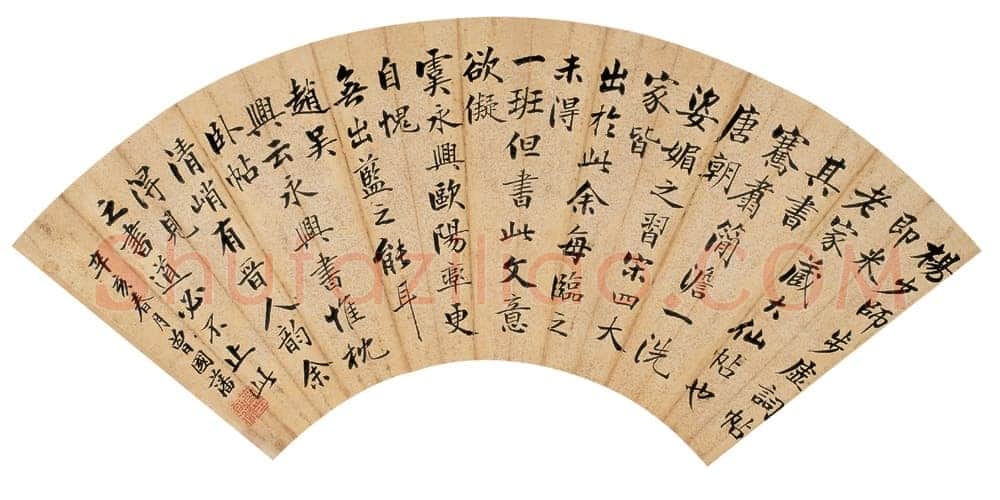 楊少師步虛詞帖
即米
老家藏大仙帖也
其書
騫翥簡澹一洗
唐朝
姿媚之習宋四大
家皆
出於此余每臨之
未得
一班但書此文意
欲儗
虞永興歐陽率更
自愧
無出藍之能耳
趙吳
興云永興書惟枕
臥帖
清峭有晉人韻余
得見道必不止此
之書
辛亥春月曾國藩
Shufaziliao.COM